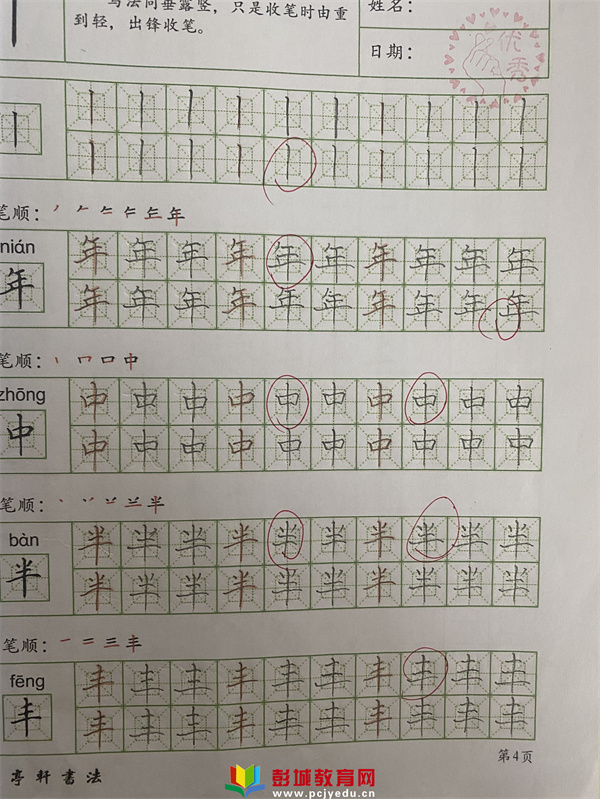 写法同垂露竖，只是收笔时由重
到轻，出锋收笔。
姓名：
日期：
优秀
丨丨丨丨丨丨丨丨丨丨
丨丨丨丨丨丨丨丨丨丨
笔顺：
年
nián
年
年年年年年年年年年年
年年年年年年年年年年
笔顺：
中
zhōng
中
中中中中中中中中中中
中中中中中中中中中中
笔顺：
半
bàn
半
半半半半半半半半半半
半半半半半半半半半半
笔顺：一二三丰
fēng
丰
丰丰丰丰丰丰丰丰丰丰
丰丰丰丰丰丰丰丰丰丰
第4页
亭轩书法
彭城教育网
www.pcjyedu.cn